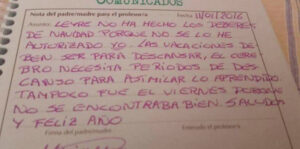 COMUNICADOS
Nota del padre/madre para el profesor/a
Fecha 11/01/2016
Asunto: LEYRE NO HA HECHO LOS DEBERES
DE NAVIDAD PORQUE NO SE LO HE
AUTORIZADO YO. LAS VACACIONES DE
BEN SER PARA DESCANSAR, EL CERE
BRO NECESITA PERIODOS DE DES
CANSO PARA ASIMILAR LO APRENDIDO
TAMPOCO FUE EL VIERNES PORQUE
NO SE ENCONTRABA BIEN. SALUDOS
Y FELIZ AÑO
Firma del padre/madre
Enterado el profesor/a